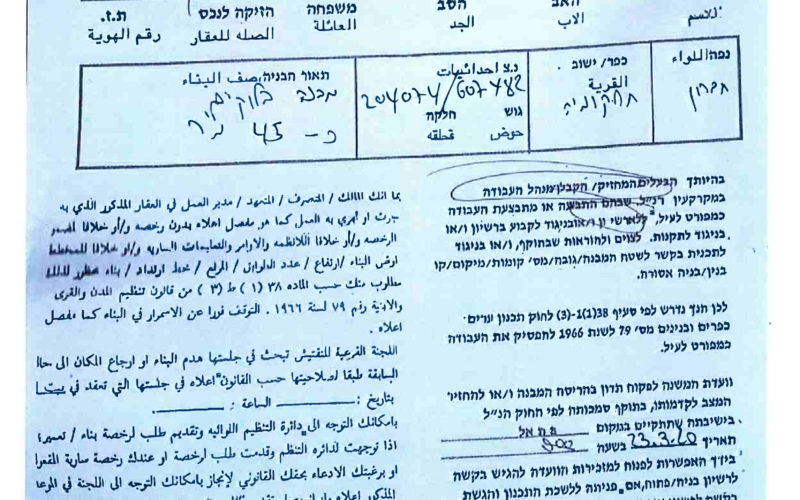 האב הסב משפחה הזיקה לנכס ת.ז.
الاسم الاب الجد العائلة الصله للعقار رقم الهوية
נפה/اللواء כפר/ישוב. נ.צ احداثيات תאור הבניה,صف البناء
القرية
חברון 204074/607482 מבנה בלוקים
גוש חלקה
حوض قطقه
כ- 45 מ"ר
בהיותך הבעלים/המחזיק/הקבלן/מנהל העבודה
במקרקעין הנ"ל, שבהם התבצעה או מתבצעת העבודה
כמפורט לעיל, ללא רשיון ו/או בניגוד לקבוע ברשיון ו/או
בניגוד לתקנות. לצוים ולהוראות שבתוקף, ו/או בניגוד
לתכנית בקשר לשטח המבנה/גובה/מס' קומות/מיקום/קו
בנין/בניה אסורה.
לכן הנך נדרש לפי סעיף 38(1)-(3) לחוק תכנון ערים
כפרים ובנינים מס' 79 לשנת 1966 להפסיק את העבודה
כמפורט לעיל.
וועדת המשנה לפקוח תדון בהריסת המבנה ו/או להחזיר
המצב לקדמותו, בתוקף סמכותה לפי החוק הנ"ל
בישיבתה שתתקיים במקום בית אל
תאריך 23.3.20 בשעה
בידך האפשרות לפנות למזכירות הוועדה להגיש בקשה
לרשיון בניה/פתוח, אם פניתה ללשכת התכנון והגשת
بما انك المالك / المتصرف / المتعهد / مدير العمل في العقار المذكور الذي به
جرت او تجري به العمل كما هو مفصل اعلاه بدون رخصه و/أو خلافا
الرخصه و/أو خلافا للانظمه والاوامر والتعليمات الساريه و/أو خلافا للمخطط
ارض البناء /ارتفاع / عدد الطوابق / الموقع / خط ارتداد / بناء محظور لذلك
مطلوب منك حسب الماده ٣٨ (١) ط (٣) من قانون تنظيم المدن والقرى
والابنية رقم ٧٩ لسنة ١٩٦٦ . التوقف فورا عن الاستمرار في البناء كما مفصل
اعلاه .
اللجنة الفرعية للتفتيش تبحث في جلستها هدم البناء او ارجاع المكان الى حا
السابقة طبقا لصلاحيتها حسب القانون اعلاه في جلستها التي تعقد في بيت
بتاريخ : الساعة :
بامكانك التوجه الى دائرة التنظيم اللوائيه وتقديم طلب لرخصة بناء / تعمير
اذا توجهت لدائره التنظم وقدمت طلب لرخصة او عندك رخصة سارية المفعو
او برغبتك الادعاء بحقك القانوني لإنجاز بامكانك التوجه الى اللجنة في الموعد